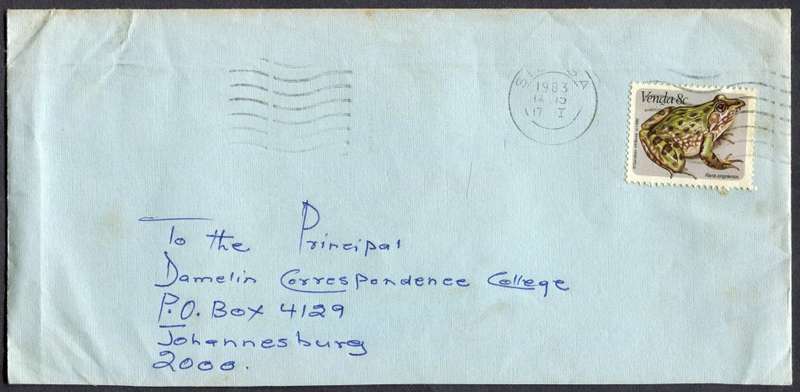 1983
Venda 8c
Rana angolensis
To the Principal
Damelin Correspondence College
P.O. Box 4129
Johannesburg
2000.